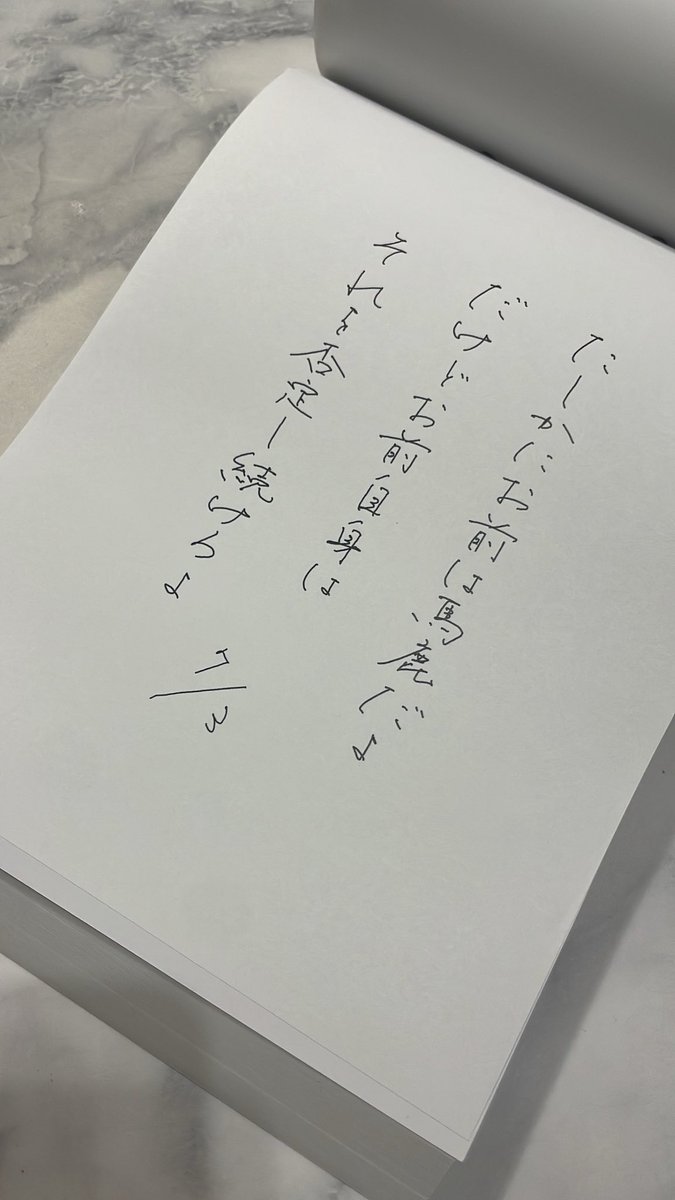 たしかにお前は馬鹿だよ
だけどお前自身は
それを否定し続けろよ
7/3